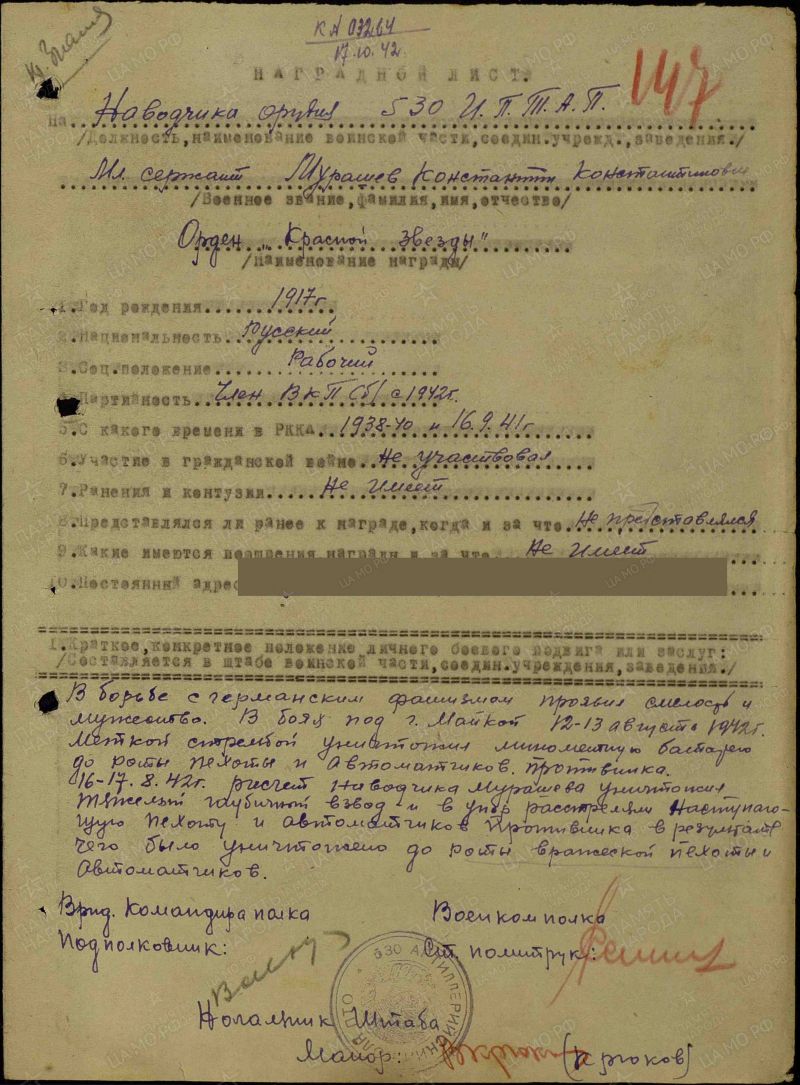 Кр. Знамя
КА 03264
17.10.42
147
НАГРАДНОЙ ЛИСТ.
На Наводчика орудия 530 И.П.Т.А.П.
/Должность, наименование воинской части, соедин. учрежд., заведения./
Мл. сержант Мурашев Константин Константинович
/Военное звание, фамилия, имя, отчество/
Орден „Красной Звезды"
/Наименование награды/
1. Год рождения 1917г
2. Национальность Русский
3. Соц. положение Рабочий
4. Партийность Член ВКП(б) с 1942г.
5. С какого времени в РККА 1938-40 и 16.9.41г
6. Участие в гражданской войне Не участвовал
7. Ранения и контузии Не имеет
8. Представлялся ли ранее к награде, когда и за что Не представлялся
9. Какие имеются поощрения награды и за что Не имеет
10. Постоянный адрес
1. Краткое, конкретное положение личного боевого подвига или заслуг:
/Составляется в штабе воинской части, соедин. учреждения, заведения./
В борьбе с германским фашизмом проявил смелость и
мужество. В боях под г. Майкоп 12-13 августа 1942г.
Меткой стрельбой уничтожил минометную батарею
до роты пехоты и Автоматчиков противника.
16-17.8.42г. расчет Наводчика Мурашева уничтожил
тяжелый гаубичный взвод и в упор расстрелял Наступаю-
щую пехоту и автоматчиков противника в результате
чего было уничтожено до роты вражеской пехоты и
Автоматчиков.
Врид. Командира полка Военком полка
Подполковник: Ст. политрук:
530 АРТИЛЛЕРИЙСКИЙ
Начальник Штаба
Майор: (Крюков)